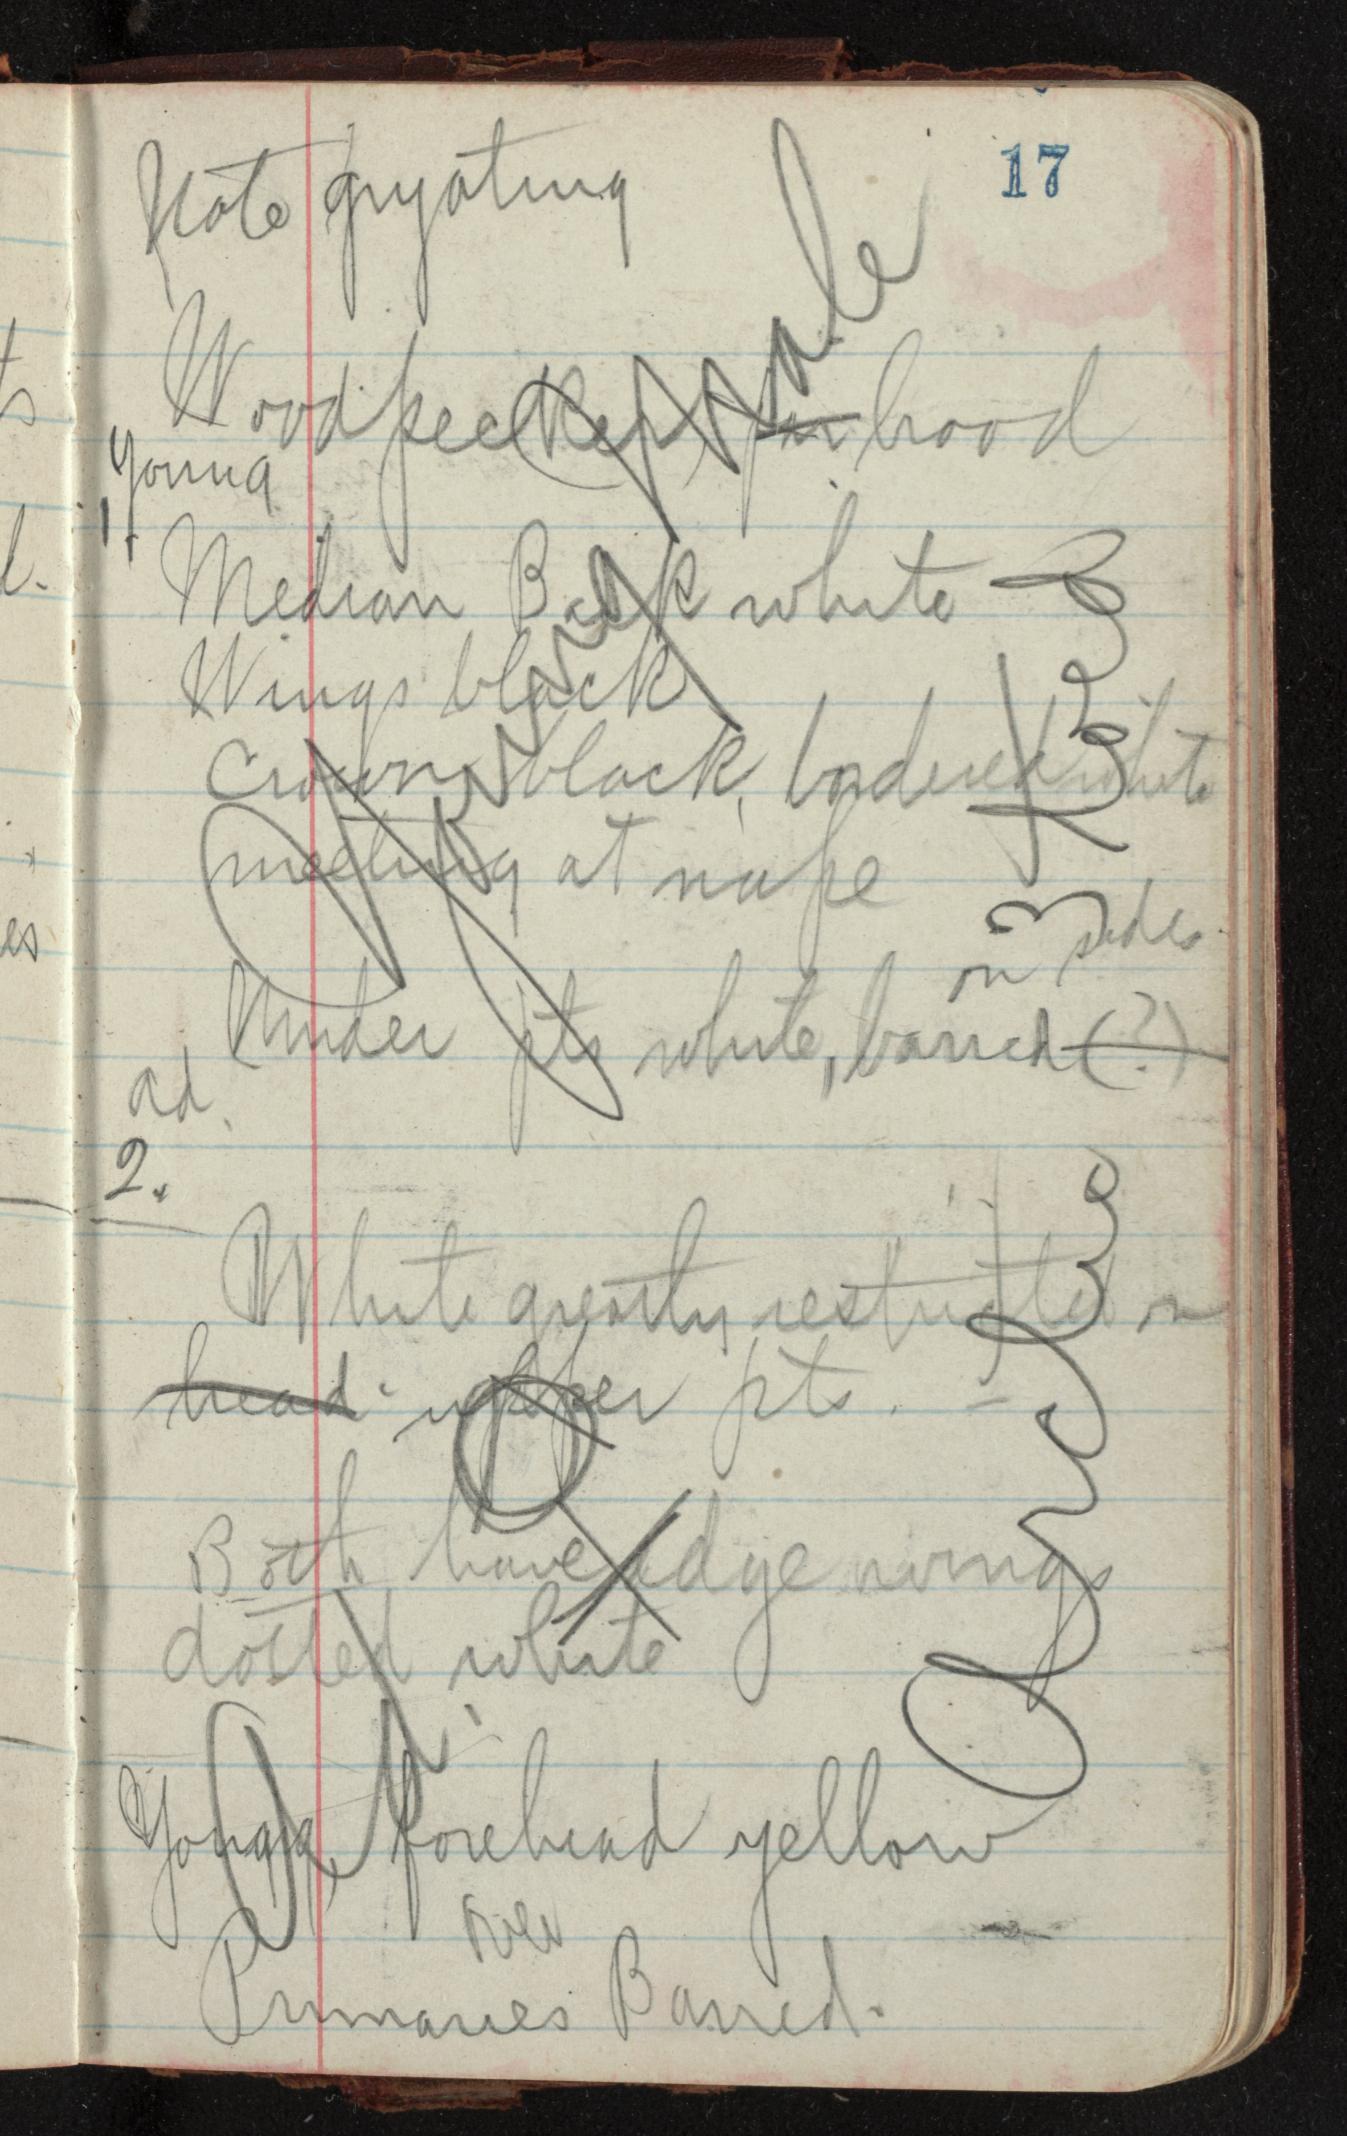 17
Note gyrating
Woodpecker brood
Young
1.
Median Back white
Wings black
Crown black, bordered white
meeting at nape
on sides
Under pts white, barred (?)
ad.
2.
White greatly restricted on
head upper pts.
Both have edge wings
dotted white
Young forehead yellow
over
Primaries Barred.
Young male
3 toed